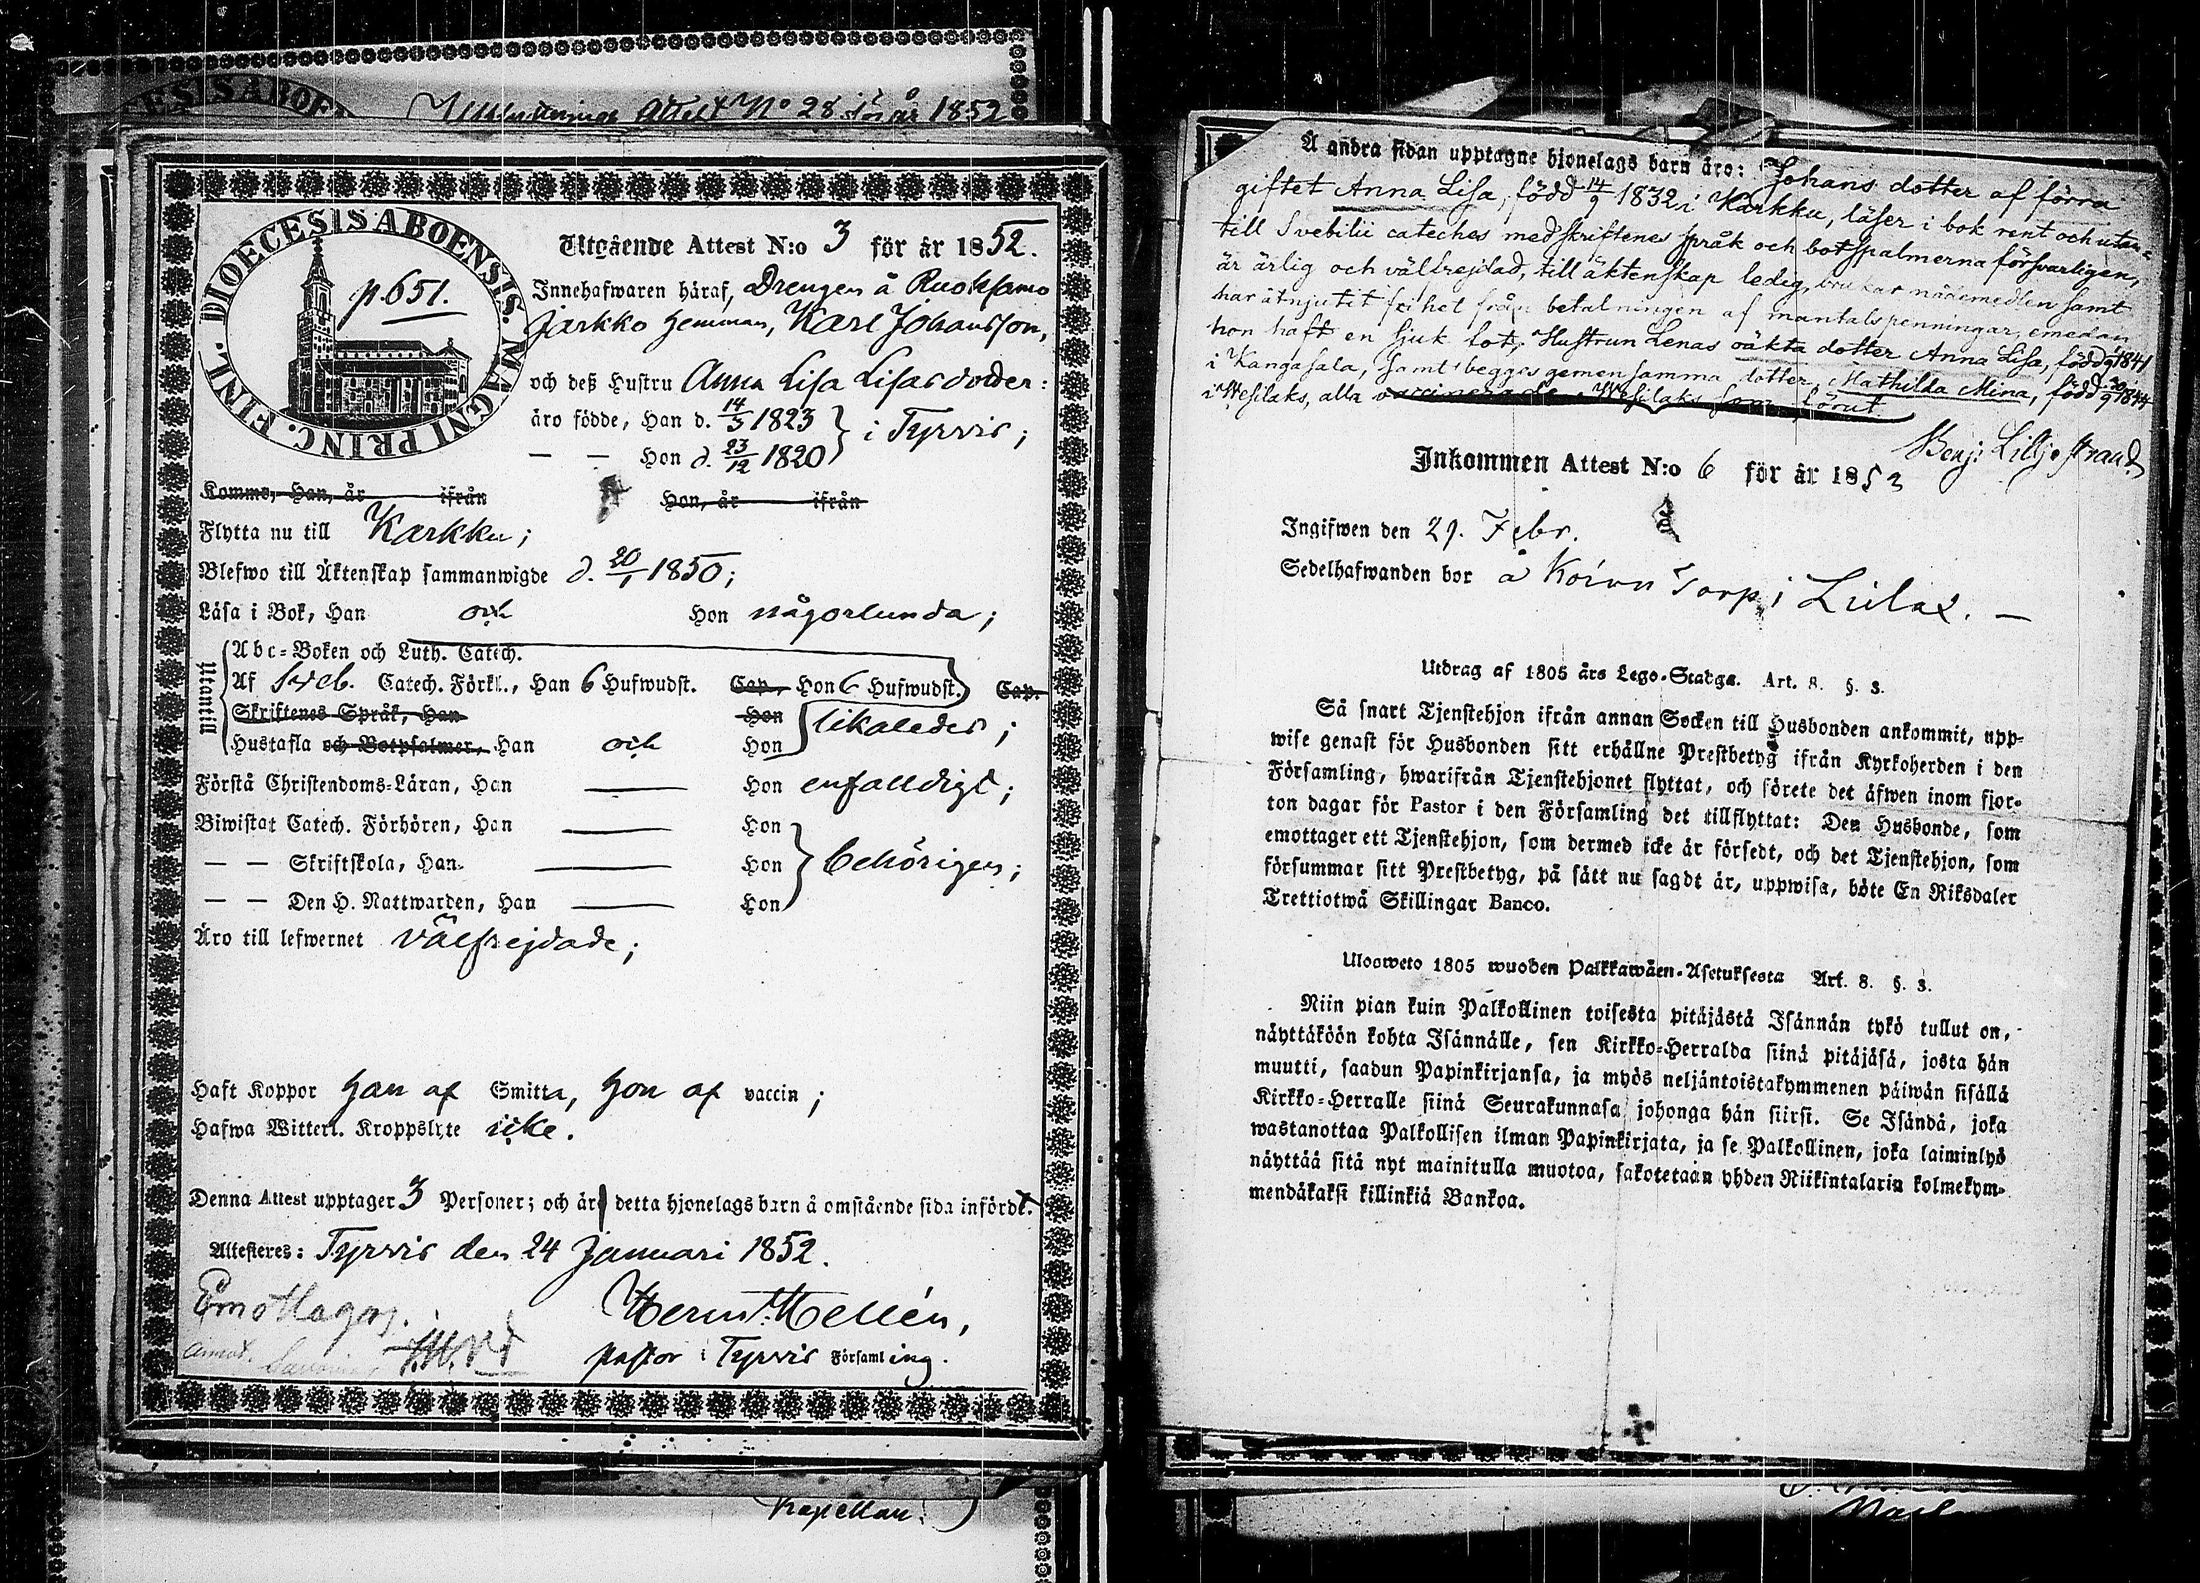 DIOECESIS ABOENSIS. MAGNI PRINC. FINL.
p. 651.
Utgående Attest N:o 3 för år 1852.
Innehafwaren häraf, Drengen å Ruoksamo
Jaakko hemman, Karl Johansson,
och deß Hustru Anna Lisa Lisasdotter:
äro födde, Han d. 14/3 1823 } i Tyrvis;
— — Hon d. 23/12 1820
Komme, Han, år ifrån Hon, år ifrån
Flytta nu till Karkku;
Blefwo till Äktenskap sammanwigde d. 20/1 1850;
Läsa i Bok, Han och Hon någorlunda;
Utantill
Abc-Boken och Luth. Catech.
Af Sveb. Catech. Förkl., Han 6 Hufwudst. Cap., Hon 6 Hufwudst. Cap.
Skriftenes Språk, Han Hon
likaledes;
Hustafla och Botpsalmer, Han och Hon
Förstå Christendoms-Läran, Han — Hon enfalldigt;
Biwistat Catech. Förhören, Han — Hon
— — Skriftskola, Han — Hon } behörigen;
— — Den H. Nattwarden, Han — Hon
Äro till lefwernet välfrejdade;
Haft Koppor han af Smitta, hon af vaccin;
Hafwa Witterl. Kroppslyte icke.
Denna Attest upptager 3 Personer; och är detta hjonelags barn å omstående sida infördt.
Attesteres: Tyrvis den 24 Januari 1852.
Emottages.
Herm. Hellén,
pastor i Tyrvis Församling.
Attest No 28 för år 1852
Kapellan.
Å andra sidan upptagne hjonelags barn äro: Johans dotter af förra
giftet Anna Lisa, född 14/9 1832 i Karkku, läser i bok rent och utan-
till Svebilii cateches med skriftenes språk och botpsalmerna försvarligen,
är ärlig och välfrejdad, till äktenskap ledig, brukar nådemedlen samt
har åtnjutit frihet från betalningen af mantalspenningar, emedan
hon haft en sjuk fot, Hustrun Lenas oäkta dotter Anna Lisa, född 1841
i Kangasala, samt begges gemensamma dotter, Mathilda Mina, född 1844
i Wesilaks, alla vaccinerade. Wesilaks som förut.
Benj: Liljestrand
Inkommen Attest N:o 6 för år 1852
Ingifwen den 29. Febr.
Sedelhafwanden bor å Koivu Torp i Lielax. —
Utdrag af 1805 års Lego-Stadga. Art. 8. §. 3.
Så snart Tjenstehjon ifrån annan Socken till Husbonden ankommit, upp-
wise genast för Husbonden sitt erhållne Prestbetyg ifrån Kyrkoherden i den
Församling, hwarifrån Tjenstehjonet flyttat, och förete det äfwen inom fjor-
ton dagar för Pastor i den Församling det tillflyttat: Den Husbonde, som
emottager ett Tjenstehjon, som dermed icke är försedt, och det Tjenstehjon, som
försummar sitt Prestbetyg, på sätt nu sagdt är, uppwisa, böte En Riksdaler
Trettiotwå Skillingar Banco.
Ulosweto 1805 wuoden Palkkawäen-Asetuksesta Art. 8. §. 3.
Niin pian kuin Palkollinen toisesta pitäjästä Isännän tykö tullut on,
näyttäköön kohta Isännälle, sen Kirkko-Herralda siinä pitäjäsä, josta hän
muutti, saadun Papinkirjansa, ja myös neljäntoistakymmenen päiwän sisällä
Kirkko-Herralle siinä Seurakunnasa johonga hän siirsi. Se Isändä, joka
wastanottaa Palkollisen ilman Papinkirjata, ja se Palkollinen, joka laiminlyö
näyttää sitä nyt mainitulla muotoa, sakotetaan yhden Riikintalarin kolmekym-
mendäkaksi killinkiä Bankoa.